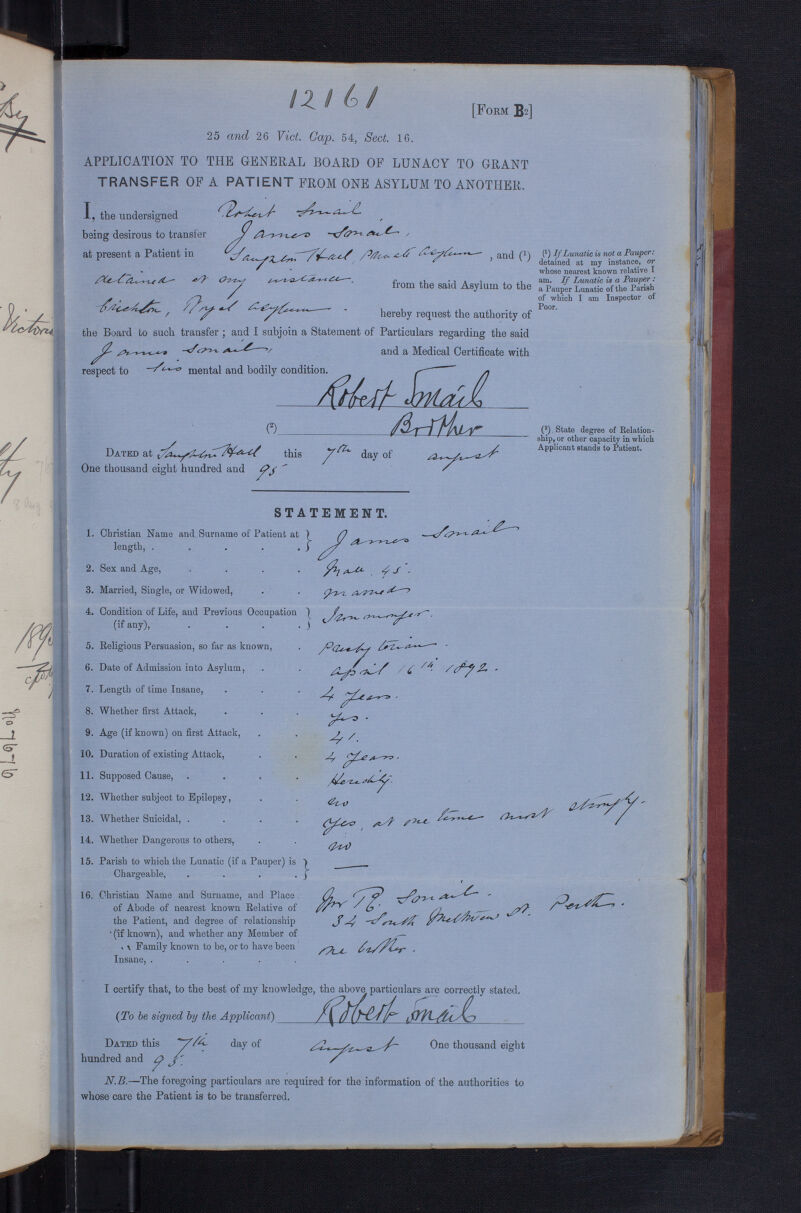 12161
[FORM B2]
25 and 26 Vict. Cap. 54, Sect. 16.
APPLICATION TO THE GENERAL BOARD OF LUNACY TO GRANT
TRANSFER OF A PATIENT FROM ONE ASYLUM TO ANOTHER.
I, the undersigned Robert Smail,
being desirous to transfer James Smail,
at present a Patient in Saughton Hall, Private Asylum, and (1)
detained at my instance from the said Asylum to the
Crichton, Royal Asylum. hereby request the authority of
the Board to such transfer; and I subjoin a Statement of Particulars regarding the said
James Smail, and a Medical Certificate with
respect to his mental and bodily condition.
(1) If Lunatic is not a Pauper:
detained at my instance, or
whose nearest known relative I
am. If Lunatic is a Pauper:
a Pauper Lunatic of the Parish
of which I am Inspector of
Poor.
Robert Smail
(2) Brother
(2) State degree of Relation-
ship, or other capacity in which
Applicant stands to Patient.
DATED at Saughton Hall this 7th day of August
One thousand eight hundred and 95
STATEMENT.
1. Christian Name and Surname of Patient at length, . . . . . James Smail
2. Sex and Age, . . . . Male. 45.
3. Married, Single, or Widowed, . . married
4. Condition of Life, and Previous Occupation (if any), . . . . . Ironmonger.
5. Religious Persuasion, so far as known, . Presbyterian.
6. Date of Admission into Asylum, . . April 16th 1892.
7. Length of time Insane, . . . 4 years.
8. Whether first Attack, . . . yes.
9. Age (if known) on first Attack, . . 41.
10. Duration of existing Attack, . . 4 years.
11. Supposed Cause, . . . . Heredity
12. Whether subject to Epilepsy, . . no
13. Whether Suicidal, . . . . yes, at one time most strongly.
14. Whether Dangerous to others, . . no
15. Parish to which the Lunatic (if a Pauper) is Chargeable, . . . . . —
16. Christian Name and Surname, and Place
of Abode of nearest known Relative of
the Patient, and degree of relationship
(if known), and whether any Member of
Family known to be, or to have been
Insane, . . . . .
Mr R. Smail.
34 South Methven St. Perth.
one brother.
I certify that, to the best of my knowledge, the above particulars are correctly stated.
(To be signed by the Applicant) Robert Smail
DATED this 7th day of August One thousand eight
hundred and 95.
N.B.—The foregoing particulars are required for the information of the authorities to
whose care the Patient is to be transferred.